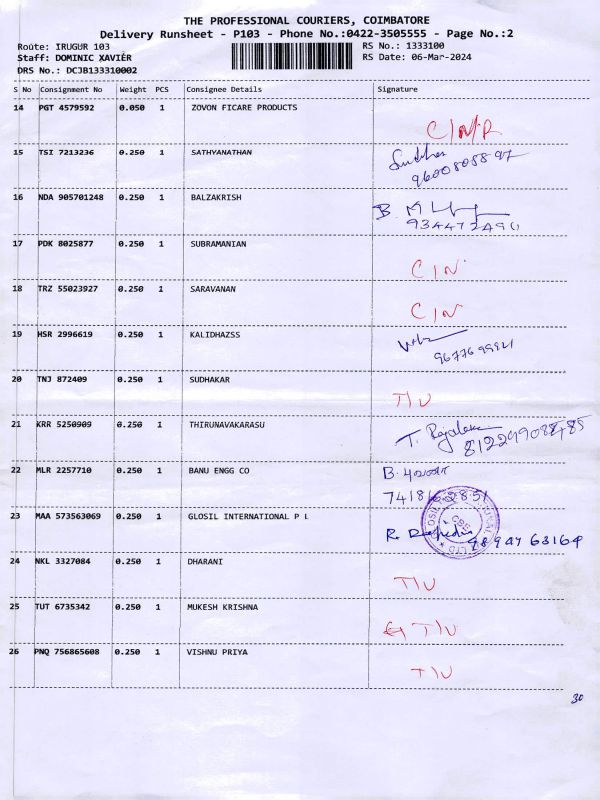 THE PROFESSIONAL COURIERS, COIMBATORE
Delivery Runsheet - P103 - Phone No.:0422-3505555 - Page No.:2
Route: IRUGUR 103 RS No.: 1333100
Staff: DOMINIC XAVIER RS Date: 06-Mar-2024
DRS No.: DCJB133310002
S No Consignment No Weight PCS Consignee Details Signature
14 PGT 4579592 0.050 1 ZOVON FICARE PRODUCTS
15 TSI 7213236 0.250 1 SATHYANATHAN
9600808897
16 NDA 905701248 0.250 1 BALZAKRISH
B.
9344724901
17 PDK 8025877 0.250 1 SUBRAMANIAN
C/N
18 TRZ 55023927 0.250 1 SARAVANAN
C/N
19 MSR 2996619 0.250 1 KALIDHAZSS
20 TNJ 872409 0.250 1 SUDHAKAR
T/U
21 KRR 5250909 0.250 1 THIRUNAVAKARASU
T.
22 MLR 2257710 0.250 1 BANU ENGG CO
B.
23 MAA 573563069 0.250 1 GLOSIL INTERNATIONAL P L
R.
9894763164
24 NKL 3327084 0.250 1 DHARANI
T/U
25 TUT 6735342 0.250 1 MUKESH KRISHNA
T/U
26 PNQ 756865608 0.250 1 VISHNU PRIYA
T/U
30